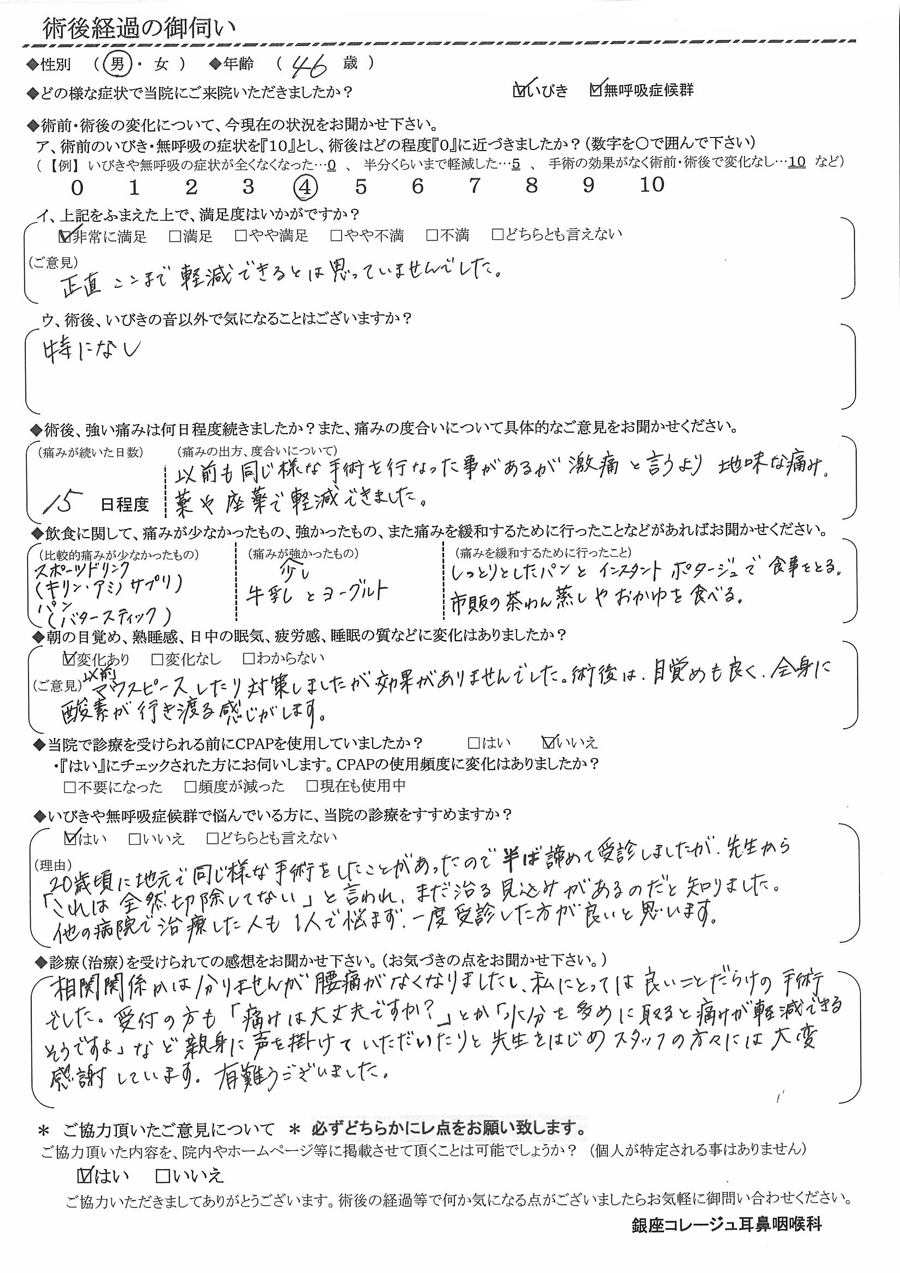 術後経過の御伺い
◆性別 （ 男 ・ 女 ） ◆年齢 （ 46 歳 ）
◆どの様な症状で当院にご来院いただきましたか？ ☑いびき ☑無呼吸症候群
◆術前・術後の変化について、今現在の状況をお聞かせ下さい。
ア、術前のいびき・無呼吸の症状を『10』とし、術後はどの程度『0』に近づきましたか？（数字を○で囲んで下さい）
（【例】 いびきや無呼吸の症状が全くなくなった…0 、 半分くらいまで軽減した…5 、 手術の効果がなく術前・術後で変化なし…10 など）
0 1 2 3 ④ 5 6 7 8 9 10
イ、上記をふまえた上で、満足度はいかがですか？
☑非常に満足 □満足 □やや満足 □やや不満 □不満 □どちらとも言えない
（ご意見）
正直 ここまで 軽減できるとは思っていませんでした。
ウ、術後、いびきの音以外で気になることはございますか？
特になし
◆術後、強い痛みは何日程度続きましたか？また、痛みの度合いについて具体的なご意見をお聞かせください。
（痛みが続いた日数） （痛みの出方、度合いについて）
以前も同じ様な手術を行なった事があるが 激痛 と言うより 地味な痛み。
15 日程度 薬や座薬で軽減できました。
◆飲食に関して、痛みが少なかったもの、強かったもの、また痛みを緩和するために行ったことなどがあればお聞かせください。
（比較的痛みが少なかったもの） （痛みが強かったもの） （痛みを緩和するために行ったこと）
スポーツドリンク 少し しっとりとしたパンと インスタント ポタージュで 食事をとる。
（キリン・アミノサプリ） 牛乳 と ヨーグルト
パン 市販の茶わん蒸しやおかゆを食べる。
（バタースティック）
◆朝の目覚め、熟睡感、日中の眠気、疲労感、睡眠の質などに変化はありましたか？
☑変化あり □変化なし □わからない
（ご意見）以前 マウスピースしたり対策しましたが効果がありませんでした。術後は、目覚めも良く、全身に
酸素が行き渡る感じがします。
◆当院で診療を受けられる前にCPAPを使用していましたか？ □はい ☑いいえ
・『はい』にチェックされた方にお伺いします。CPAPの使用頻度に変化はありましたか？
□不要になった □頻度が減った □現在も使用中
◆いびきや無呼吸症候群で悩んでいる方に、当院の診療をすすめますか？
☑はい □いいえ □どちらとも言えない
（理由）
20歳頃に地元で同じ様な手術をしたことがあったので 半ば諦めて受診しましたが、先生から
「これは 全然切除してない」と言われ、まだ治る見込みがあるのだと知りました。
他の病院で治療した人も 1人で悩まず、一度受診した方が良いと思います。
◆診療（治療）を受けられての感想をお聞かせ下さい。（お気づきの点をお聞かせ下さい。）
相関関係かは分りませんが腰痛がなくなりましたし、私にとっては良いことだらけの手術
でした。受付の方も「痛みは大丈夫ですか？」とか「水分を多めに取ると痛みが軽減できる
そうですよ」など親身に声を掛けていただいたりと先生をはじめスタッフの方々には大変
感謝しています。有難うございました。
＊ ご協力頂いたご意見について ＊ 必ずどちらかにレ点をお願い致します。
ご協力頂いた内容を、院内やホームページ等に掲載させて頂くことは可能でしょうか？ （個人が特定される事はありません）
☑はい □いいえ
ご協力いただきましてありがとうございます。術後の経過等で何か気になる点がございましたらお気軽に御問い合わせください。
銀座コレージュ耳鼻咽喉科